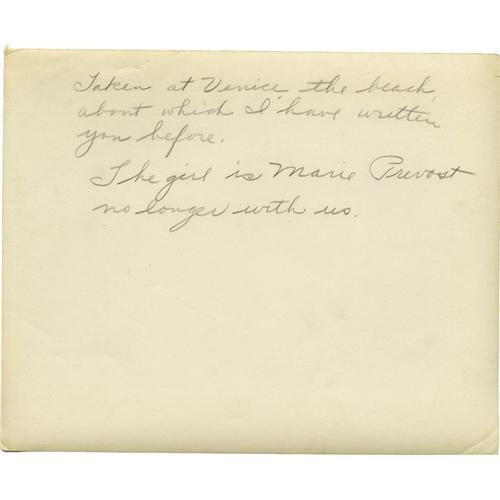 Taken at Venice, the beach,
about which I have written
you before.
The girl is Marie Prevost
no longer with us.